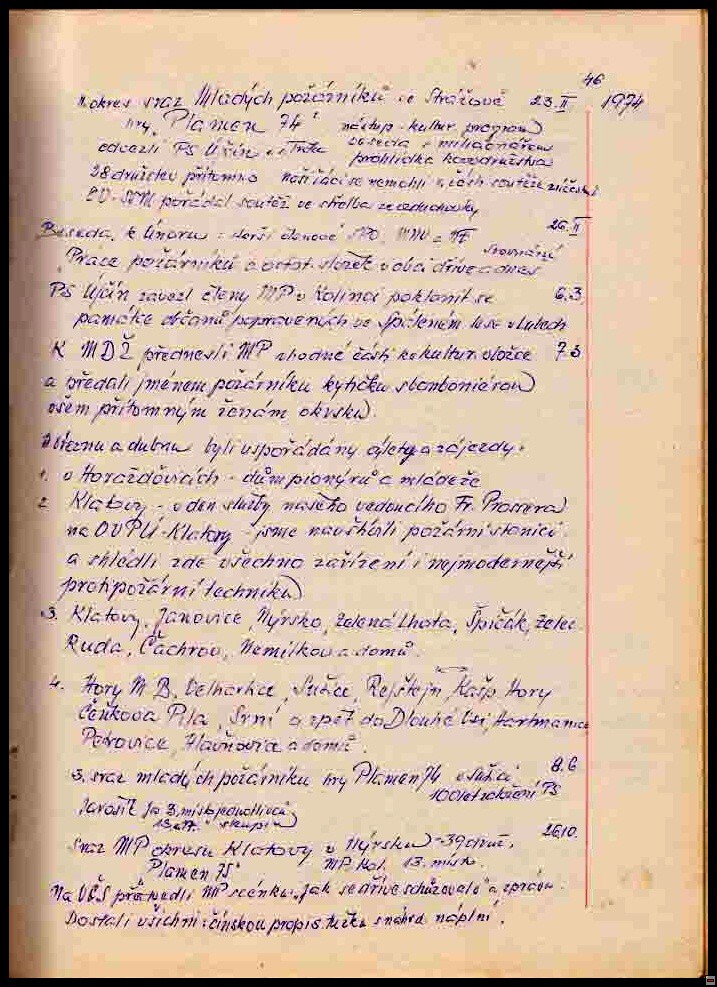 46
II. okres sraz Mladých požárníků ve Strážově 23.II 1974
hry "Plamen 74" nástup - kultur program
beseda s milicionářem
odvezli PS Újčín
prohlídka hazdružstva
28 družstev přítomno
OV-SSM pořádal soutěž ve střelbě ze vzduchovky
26.II
Beseda k Únoru: starší členové SPO, MNV a NF
Srovnání
"Práce požárníků a ostat. složek v obci dříve a dnes
PS Újčín zavezl členy MP v Kolinci poklonit se 6.3.
památce občanů popravených ve Spáleném lese v Lubech
K MDŽ přednesli MP vhodné části ke kultur. vložce 7.3
a předali jménem požárníku kytičku s bonboniérou
všem přítomným ženám okrsku.
V březnu a dubnu byli uspořádány výlety a zájezdy:
1. v Horažďovicích - dům pionýrů a mládeže
2 Klatovy - v den služby našeho vedoucího Fr. Prossera
na OVPÚ-Klatovy - jsme navštívili požární stanici
a shlédli zde všechno zařízení i nejmodernější
protipožární techniku
3. Klatovy, Janovice, Nýrsko, Zelená Lhota, Špičák, Želez.
Ruda, Čachrov, Nemilkov a domů.
4. Hory M B, Velhartice, Sušice, Rejštejn, Kašp. Hory
Čeňkova Pila, Srní a zpět do Dlouhé Vsi, Hartmanice
Petrovice, Hlavňovice a domů.
8.6
3. sraz mladých požárníku hry Plamen 74 v Sušici
100 let založení PS
Jarošík Ja 3. místo jednotlivci
13. " skupin
26.10.
Sraz MP okresu Klatovy v Nýrsku - 39 druž.
"Plamen 75" MP Kol. 13. místo.
Na VČS předvedli MP scénku: "Jak se dříve schůzovalo" a zprávu.
Dostali všichni: čínskou propis. tužku s náhrd. náplní.